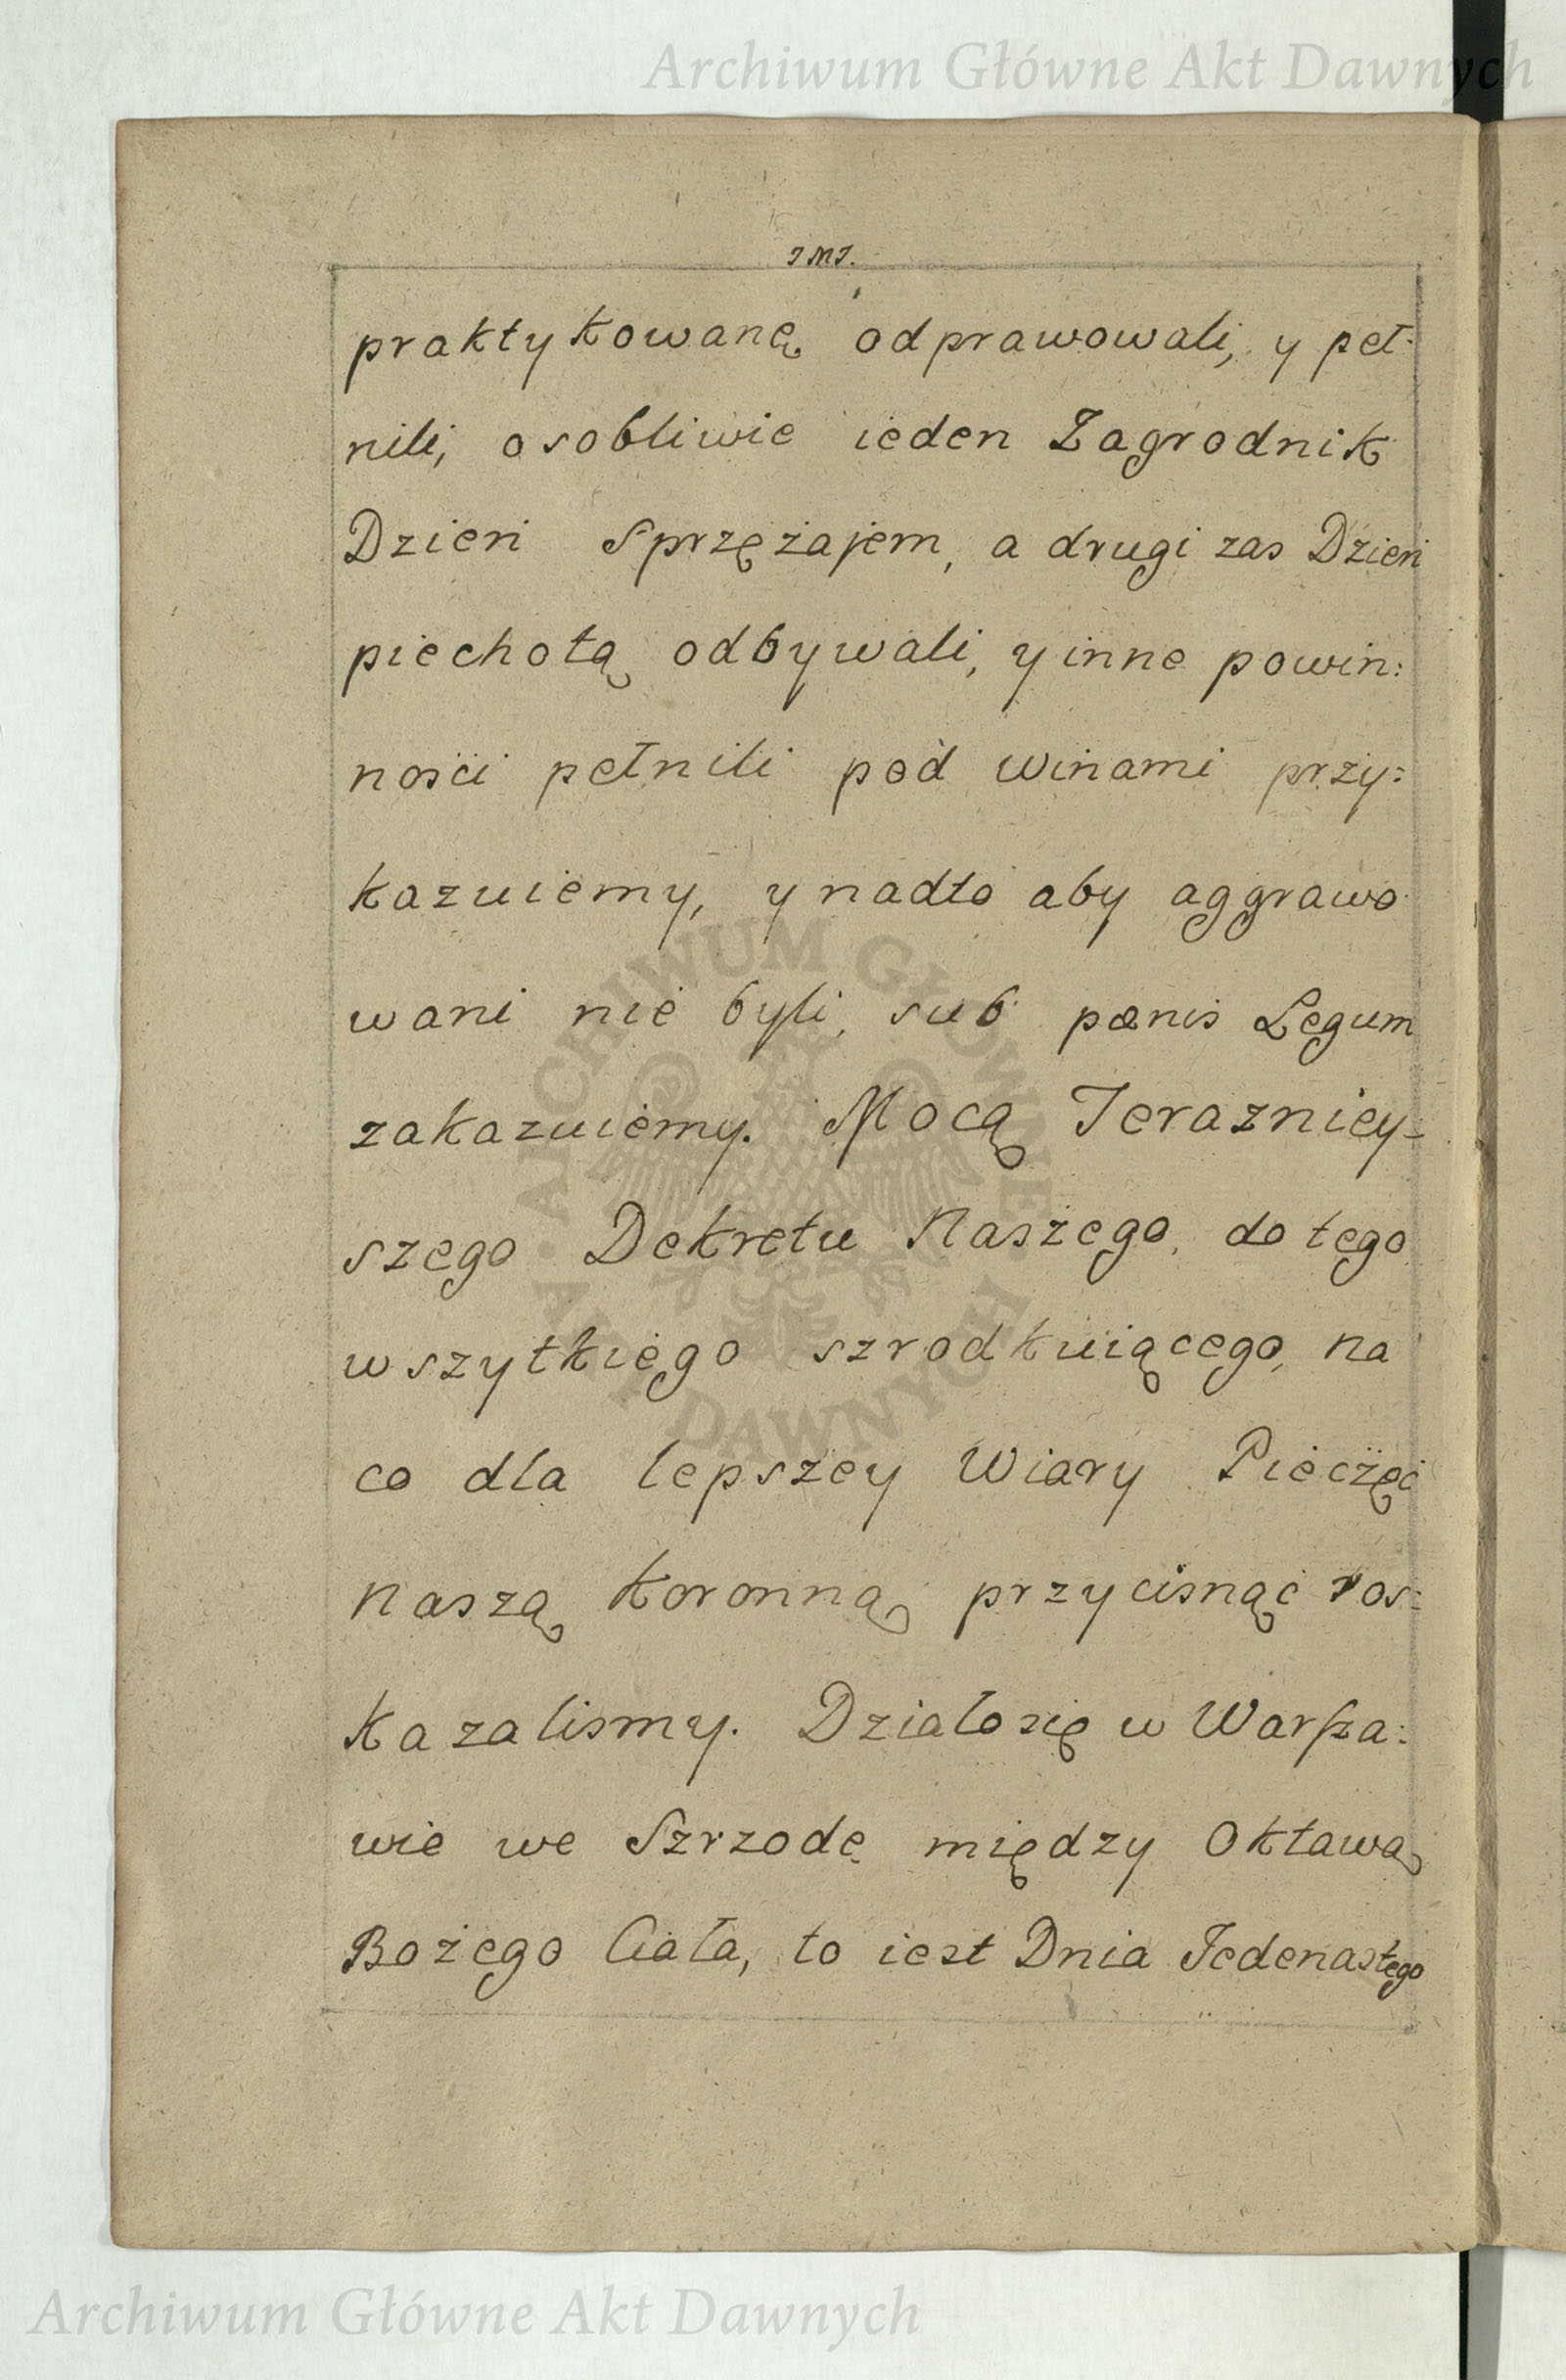 Archiwum Główne Akt Dawnych
JMJ.
praktykowaną odprawowali, y peł-
nili, osobliwie ieden Zagrodnik
Dzień Sprzężajem, a drugi zas Dzień
piechotą odbywali, y inne powin:
nosci pełnili pod winami przy:
kazuiemy, y nadto aby aggrawo
wani nie byli, sub pœnis Legum
zakazuiemy. Mocą Terazniey-
szego Dekretu Naszego, do tego
wszytkiego szrodkuiącego, na
co dla lepszey Wiary Pieczęć
Naszą Koronną przycisnąć ros:
kazalismy. Działo się w Warsza:
wie we Szrzodę między Oktawą
Bożego Ciała, to iest Dnia Jedenastego
ARCHIWUM GŁÓWNE AKT DAWNYCH
Archiwum Główne Akt Dawnych